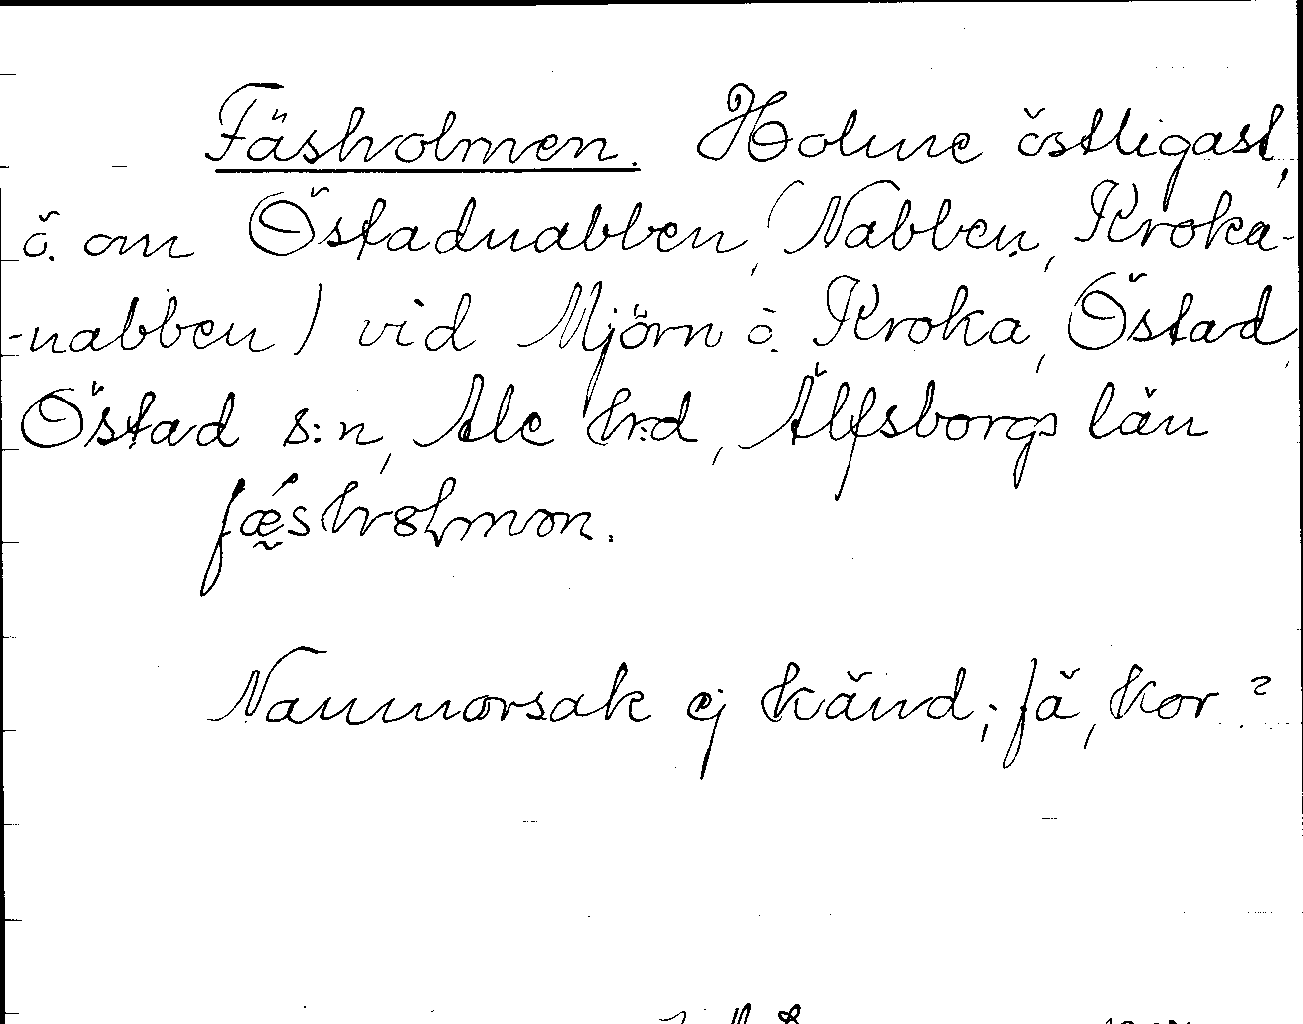 Fäsholmen. Holme östligast,
ö. om Östadnabben, (Nabben, Kroka-
-nabben) vid Mjörn ö. Kroka, Östad,
Östad s:n, Ale h:d, Älfsborgs län
Namnorsak ej känd; fä, kor?